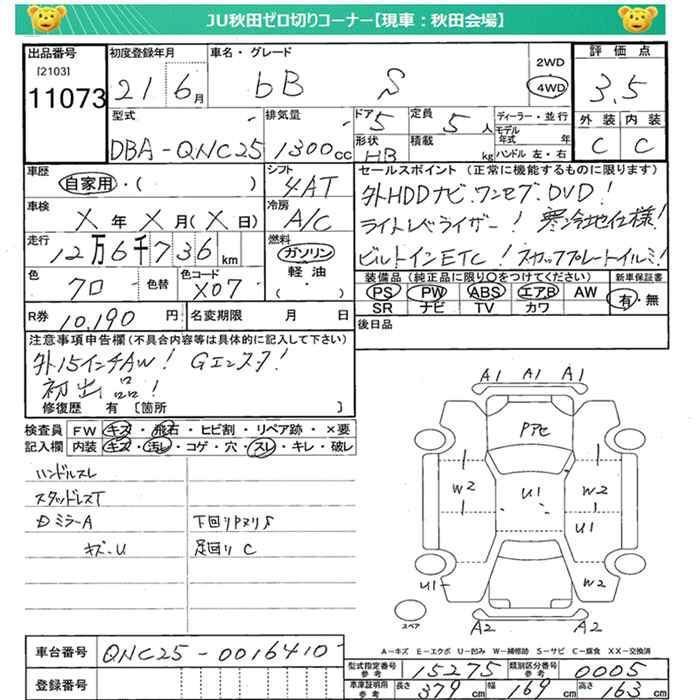 JU秋田ゼロ切りコーナー【現車：秋田会場】
出品番号 初度登録年月 車名・グレード 2WD 評価点
[2103] 4WD
11073 21 6月 bB S 3.5
型式 排気量 ドア 定員 ディーラー・並行 外装 内装
5 5人 モデル年式 年
DBA-QNC25 1300cc 形状 HB 積載 kg ハンドル 左・右 C C
車歴 シフト セールスポイント（正常に機能するものに限ります）
自家用・（ ） 4AT 外HDDナビ.ワンセグ.DVD!
車検 冷房 ライトレベライザー! 寒冷地仕様!
X年X月(X日) A/C
走行 燃料 ビルトインETC! スカッフプレートイルミ!
12万6千736km ガソリン
色 色替 色コード 軽油 装備品（純正品に限り○をつけてください） 新車保証書
クロ X07 （ ） PS PW ABS エアB AW 有・無
SR ナビ TV カワ
R券 10,190円 名変期限 月 日 後日品
注意事項申告欄（不具合内容等は具体的に記入して下さい）
外15インチAW! Gエンスタ!
初出品!
修復歴 有 [箇所 ]
検査員 FW キズ・飛石・ヒビ割・リペア跡・×要
記入欄 内装 キズ・汚レ・コゲ・穴・スレ・キレ・破レ
ハンドルスレ
スタッドレスT
DミラーA 下回りPヌリS
キズ・U 足回りC
A1 A1 A1
Pアセ
W2 U1 W2
U1
U1 W2
スペア A2 A2
A-キズ E-エクボ U-凹み W-補修跡 S-サビ C-腐食 XX-交換済
車台番号 QNC25-0016410
登録番号
型式指定番号 参考 15275 類別区分番号 参考 0005
車庫証明用 参考 長さ 379cm 幅 169cm 高さ 163cm